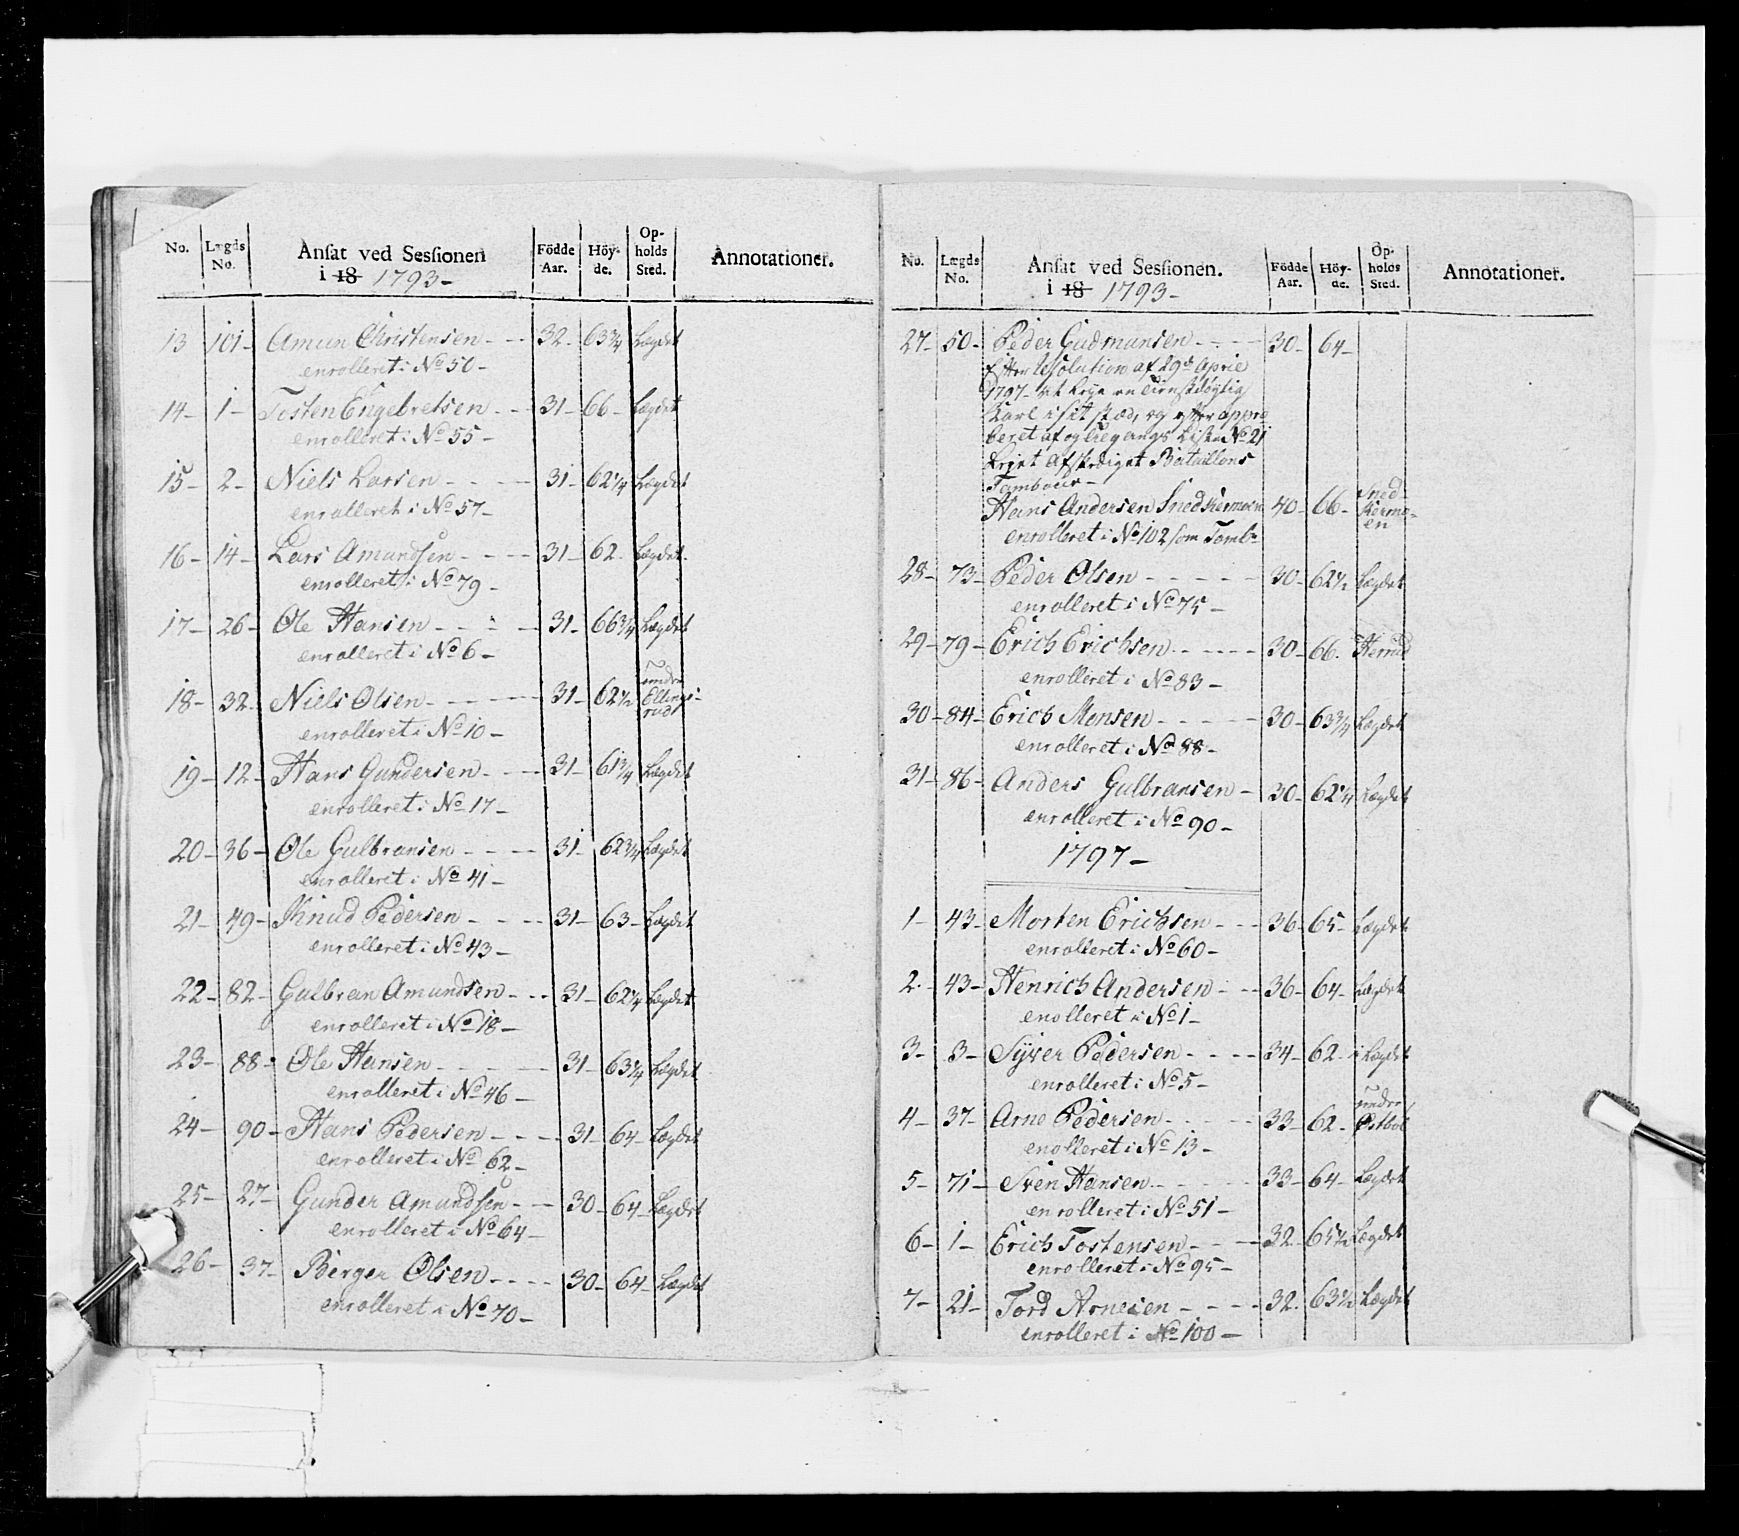 No. Lægds No. Ansat ved Sessionen i 18 1793 - Födde Aar. Höyde. Opholds Sted. Annotationer.
13 101- Amun Christensen - - - 32- 63 3/4 Lægdet
enrolleret i No 50 -
14- 1- Tosten Engebretsen - - - 31- 66- Lægdet
enrolleret i No 55 -
15- 2- Niels Larsen - - - 31- 62 1/4 Lægdet
enrolleret i No 57 -
16- 14- Lars Amundsen - - - 31- 62- Lægdet
enrolleret i No 79 -
17- 26- Ole Hansen - - - 31- 66 3/4 Lægdet
enrolleret i No 6 -
18- 32- Niels Olsen - - - 31- 62 1/2 under Ellings-rud
enrolleret i No 10 -
19- 12- Hans Gundersen - - - 31- 61 3/4 Lægdet
enrolleret i No 17 -
20- 36- Ole Gulbransen - - - 31- 62 3/4 Lægdet
enrolleret i No 41 -
21- 49- Knud Pedersen - - - 31- 63- Lægdet
enrolleret i No 43 -
22- 82- Gulbran Amundsen - - - 31- 62 1/4 Lægdet
enrolleret i No 18 -
23- 88- Ole Hansen - - - 31- 63 1/4 Lægdet
enrolleret i No 46 -
24- 90- Hans Pedersen - - - 31- 64- Lægdet
enrolleret i No 62 -
25- 27- Gunder Amundsen - - 30- 64- Lægdet
enrolleret i No 64 -
26- 37- Berger Olsen - - - 30- 64- Lægdet
enrolleret i No 70 -
No. Lægds No. Ansat ved Sessionen. i 18 1793 - Födde Aar. Höyde. Opholds Sted. Annotationer.
27- 50- Peder Gudmunsen - - - 30- 64-
Efter Resolution af 29de April
1797 - at leye en tienstdøgtig
Karl i sit stæd, og efter appro
beret af og tilgangs Liste No 21
leyet Afskediget Bataillons
Tambour -
Hans Andersen Snedkermoen 40- 66- Sned-kermo-en
enrolleret i No 102 som Tamb:
28- 73- Peder Olsen - - - 30- 62 1/2 Lægdet
enrolleret i No 75 -
29- 79- Erich Erichsen - - - 30- 66. Herud
enrolleret i No 83 -
30- 84- Erich Monsen - - - 30- 63 3/4 Lægdet
enrolleret i No 88 -
31- 86- Anders Gulbransen - 30- 62 1/4 Lægdet
enrolleret i No 90 -
1797 -
1- 43- Morten Erichsen - - - 36- 65- Lægdet
enrolleret i No 60 -
2- 43- Henrich Andersen - - 36- 64- Lægdet
enolleret i No 1 -
3- 3- Syver Pedersen - - - 34- 62- i Lægdet
enrolleret i No 5 -
4- 37- Arne Pedersen - - - 33- 62- under Østbøl
enolleret i No 13 -
5- 71- Sven Hansen - - - 33- 64- Lægdet
enrolleret i No 51 -
6- 1- Erich Tostensen - - - 32- 65 1/2 Lægdet
enrolleret i No 95 -
7- 21- Tord Arnesen - - - 32. 63 1/2 Lægdet
enrolleret i No 100 -